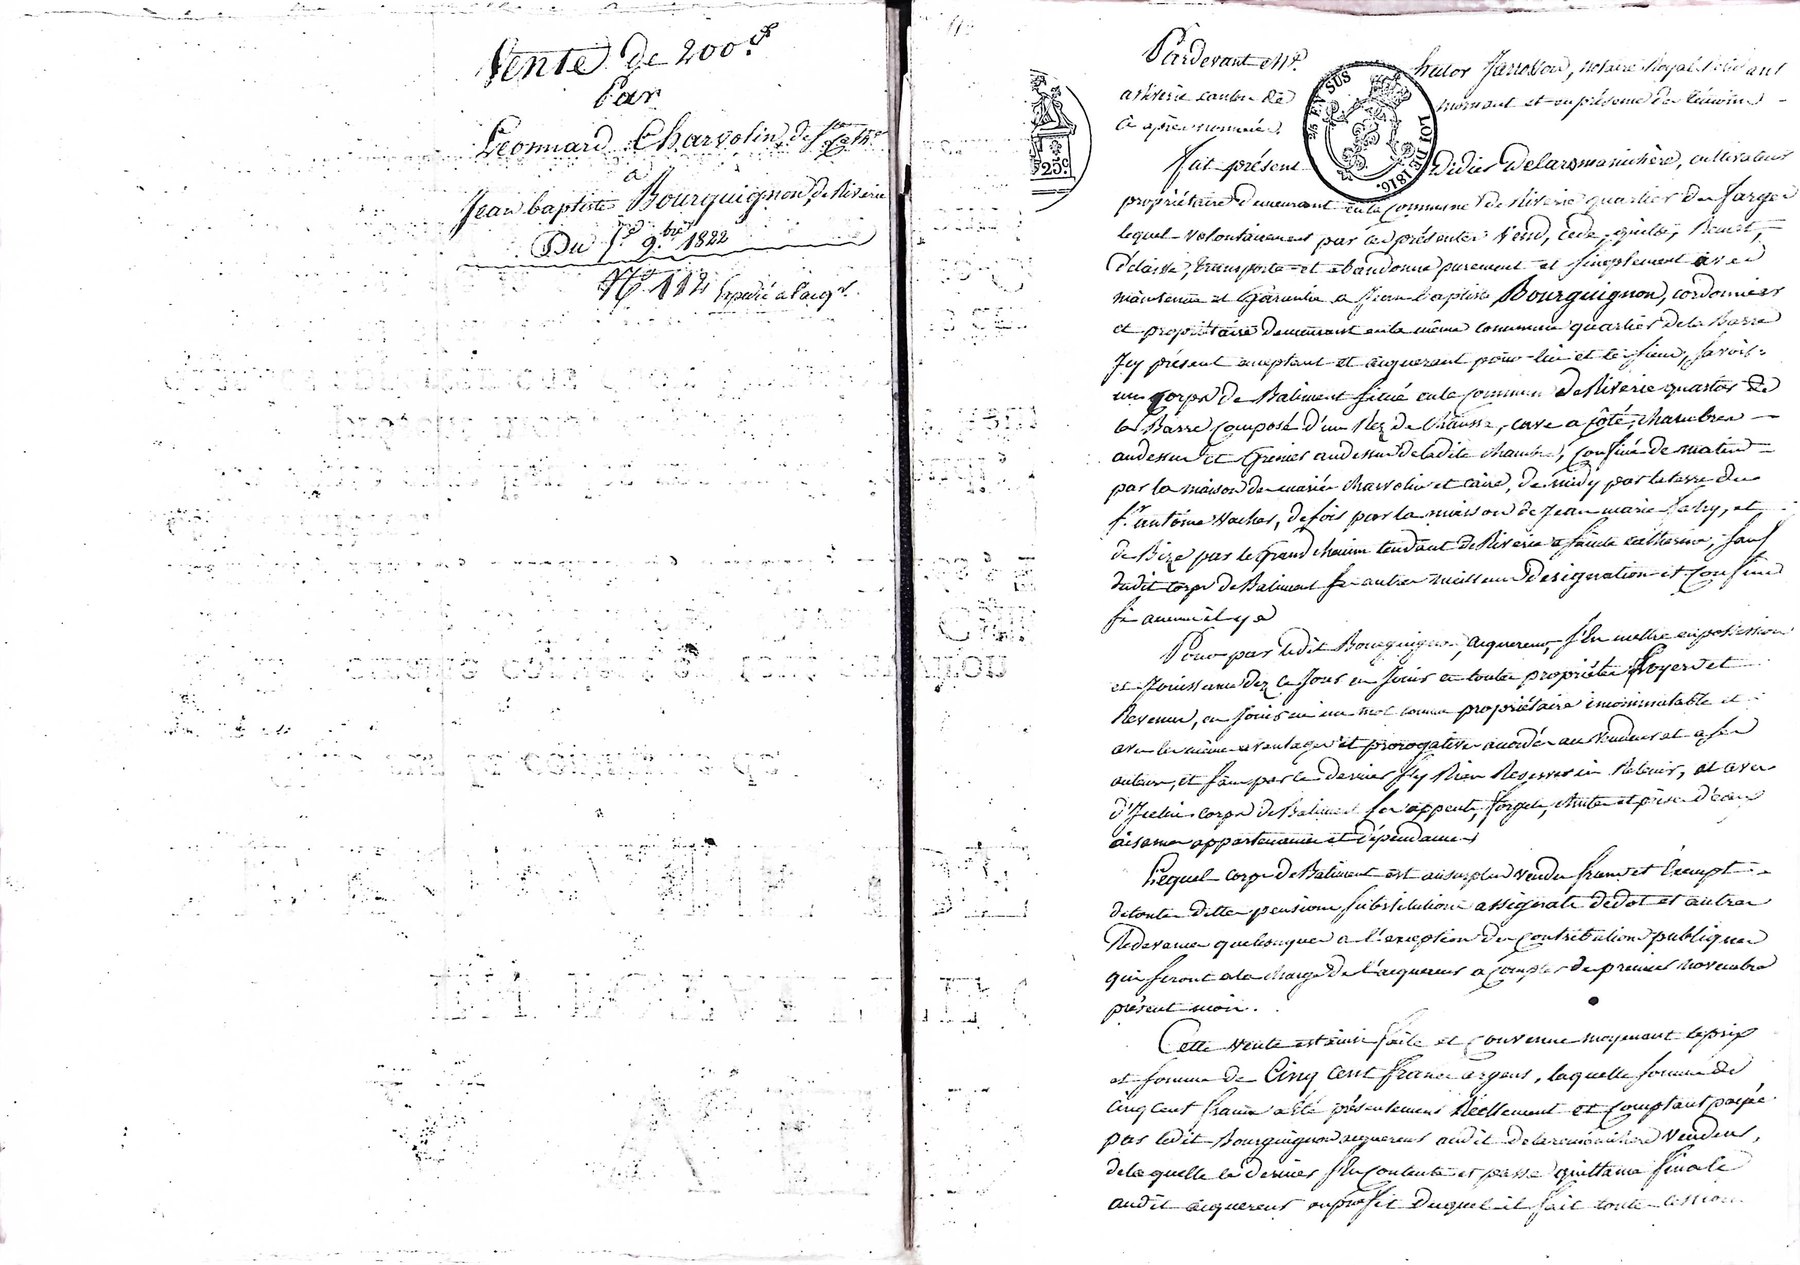 Vente de 200.f
Par
Léonnard Charvolin, de Ste Cathe
a
Jean baptiste Bourguignon, de Riverie
Du 1.er 9.bre 1822
N.o 112 Expédié a l'acqr.
Pardevant Me. hator notaire Royal Résidant
a Riverie canton de mornant et en présence des témoins
Ci après nommés,
25 EN SUS LOI DE 1816.
25c.
fait présent Didier Delaromanichère, cultivateur
propriétaire demeurant en la Commune de Riverie quartier du
lequel volontairement par ces présentes Vend, cède, quitte, Remet,
délaisse, transporte et abandonne purement et simplement avec
maintenue et Garantie a Jean baptiste Bourguignon, cordonnier
et propriétaire demeurant en la même commune quartier de la Barre
Icy présent acceptant et aiquerant pour lui et les siens, savoir:
un Corps de Batiment situé en la Commune de Riverie quartier de
la Barre Composé d'un Rez de Chaussé, cave a Côté, chambre
au dessus et Grenier au dessus de ladite chambre, Confiné de matin
par la maison de mariés charvolin et caire, de midy par la terre du
sr. antoine vacher, de soir par la maison de Jean marie, et
de Bize par le Grand chemin tendant de Riverie a sainte catherine, sauf
dudit corps de Batiment ses autres meilleurs designation et Confins
si aucuns il y a
Pour par ledit Bourguignon, aiquereur, s'En mettre en possession
et Jouissance dez ce Jour en Jouir en toutes propriétés Loyers et
Revenus, en Jouir en un mot comme propriétaire incommutable et
avec les mêmes avantages et prérogatives accordés au Vendeur et a ses
auteurs, et sans par ce dernier s'y Rien Reserver ni Retenir, et avec
d'Icelui corps de Batiment ses appents, forgets, chutes et prise d'eau
aisances appartenances et dépendances
Lequel corps de Batiment est au surplus Vendu franc et Exempt
de toutes dettes pensions substitutions assignats de dot et autres
Redevances quelconques a l'exception des Contributions publiques
qui seront a la charge de l'aiquereur a Compter du premier Novembre
présent mois.
Cette Vente est ainsi faite et Convenue moyenant le prix
et somme de Cinq Cent francs argent, laquelle somme de
cinq cent francs a été présentement Réellement et Comptant payée
par ledit Bourguignon aiquereur audit Delaromanichère Vendeur,
de laquelle ce dernier s'En Contente et passe quittance finale
audit aiquereur au profit duquel il fait toute cession